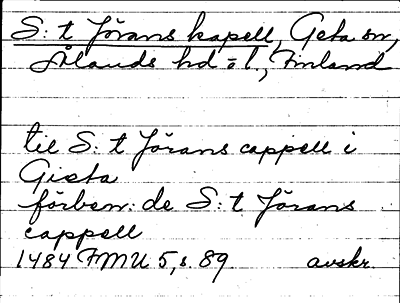 S:t Jörans kapell, Geta sn,
Ålands hd o l., Finland
til S:t Jörans cappell i
Gieta
förbem: de S:t Jörans
cappell
1484 FMU 5, s. 89. avskr.